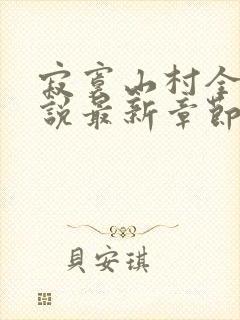 寂寞山村全
說最新章節
貝安琪